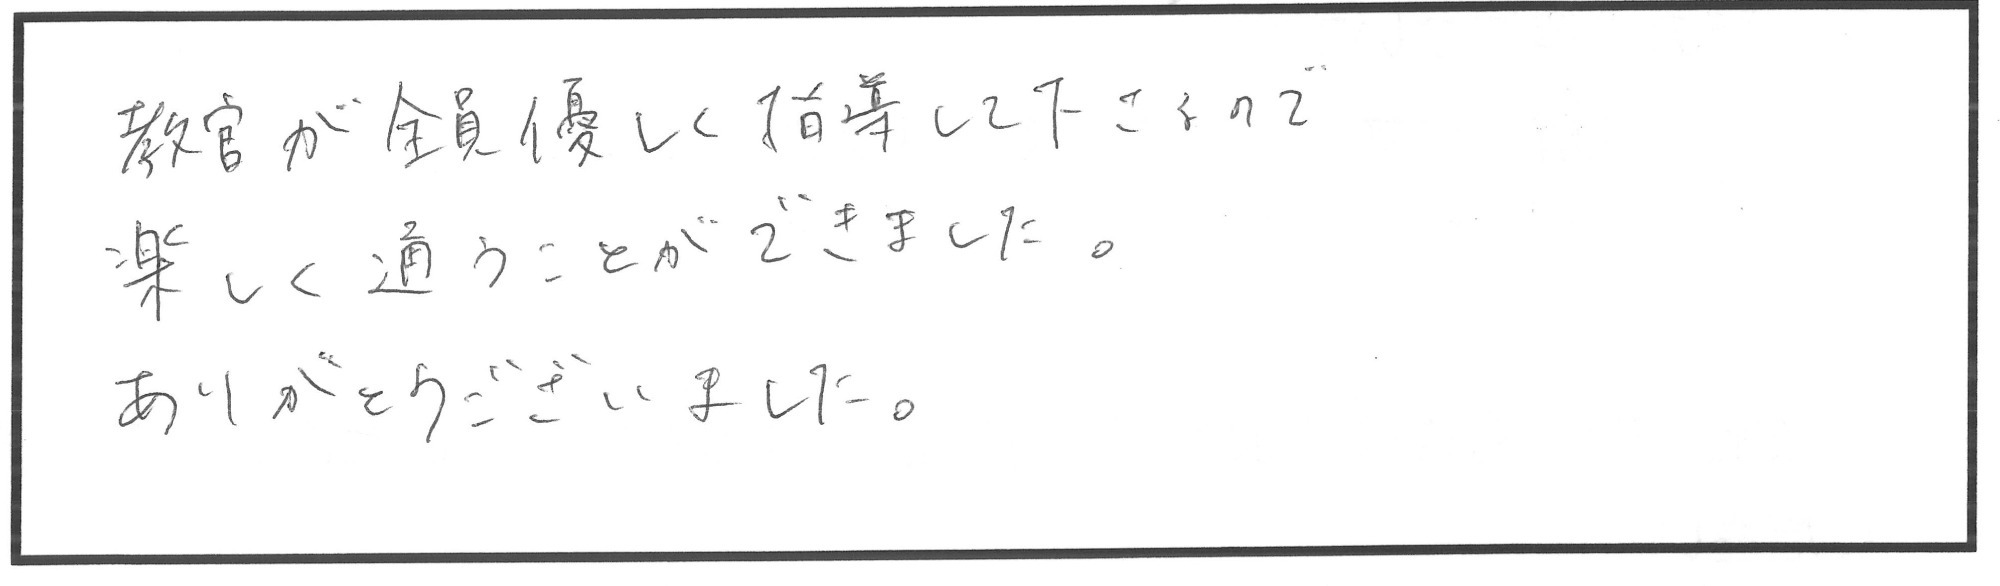 教官が全員優しく指導して下さるので
楽しく通うことができました。
ありがとうございました。